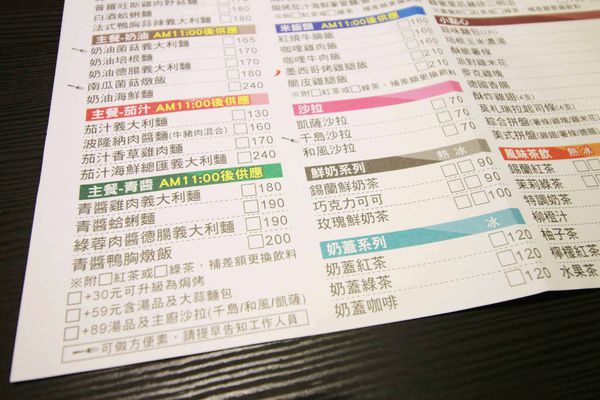 普羅旺斯雞肉野菇麵
白酒蛤蜊麵
法式鴨胸蒜辣義大利麵
主餐-奶油 AM11:00後供應
奶油菌菇義大利麵 165
奶油培根麵 170
奶油德腸義大利麵 170
南瓜菌菇燉飯 180
奶油海鮮麵 240
主餐-茄汁 AM11:00後供應
茄汁義大利麵 130
波隆納肉醬麵(牛豬肉混合) 160
茄汁香草雞肉麵 170
茄汁海鮮總匯義大利麵 240
主餐-青醬 AM11:00後供應
青醬雞肉義大利麵 180
青醬蛤蜊麵 190
綠蓉肉醬德腸義大利麵 190
青醬鴨胸燉飯 200
※附紅茶或綠茶，補差額更換飲料
+30元可升級為焗烤
+59元含湯品及大蒜麵包
+89湯品及主廚沙拉(千島/和風/凱薩)
可做方便素，請提早告知工作人員
米飯類 AM11:00後供應
紅燒牛腩飯
咖哩雞肉飯
咖哩牛肉飯
墨西哥烤雞腿飯
脆皮雞腿飯
※附紅茶或綠茶，補差額更換飲料
沙拉
凱薩沙拉 70
千島沙拉 70
和風沙拉 70
鮮奶系列 熱 冰
錫蘭鮮奶茶 90
巧克力可可 90
玫瑰鮮奶茶 100
奶蓋系列 冰
奶蓋紅茶 120
奶蓋綠茶 120
奶蓋咖啡 120
小點心
麥克雞塊
德國香腸
風味茶飲 熱 冰
錫蘭紅茶
茉莉綠茶
特調奶茶
柳橙汁
柚子茶
檸檬紅茶
水果茶